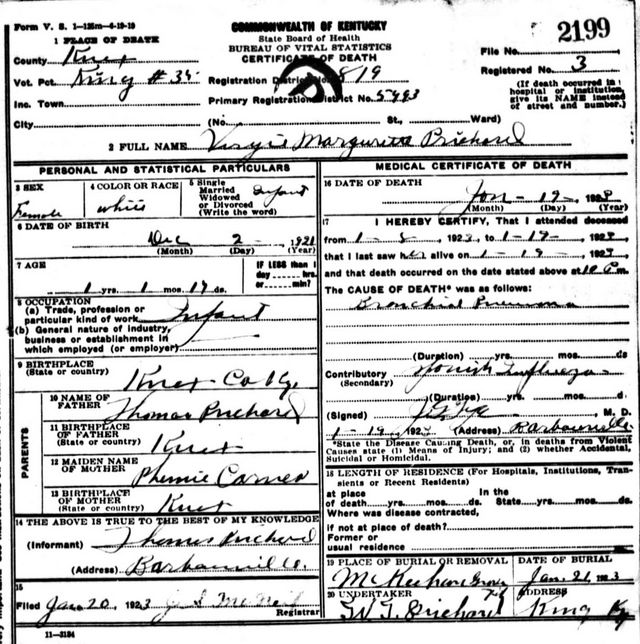 Form V. S. 1-125m-6-19-19
COMMONWEALTH OF KENTUCKY
State Board of Health
BUREAU OF VITAL STATISTICS
CERTIFICATE OF DEATH
2199
1 PLACE OF DEATH
County Knox
File No.
Vot. Pct. King # 35
Registration District No. 819
Registered No. 3
Inc. Town
Primary Registration District No. 5993
(If death occurred in a hospital or institution, give its NAME instead of street and number.)
City (No. St., Ward)
2 FULL NAME Virgie Margurita Prichard
PERSONAL AND STATISTICAL PARTICULARS
3 SEX
Female
4 COLOR OR RACE
white
5 Single
Married
Widowed
or Divorced
(Write the word)
Infant
6 DATE OF BIRTH
Dec 2 1921
(Month) (Day) (Year)
7 AGE
1 yrs. 1 mos 17 ds.
IF LESS than 1
day hrs.
or min?
8 OCCUPATION
(a) Trade, profession or
particular kind of work Infant
(b) General nature of industry,
business or establishment in
which employed (or employer)
9 BIRTHPLACE
(State or country)
Knox Co Ky.
PARENTS
10 NAME OF
FATHER
Thomas Prichard
11 BIRTHPLACE
OF FATHER
(State or country)
Knox
12 MAIDEN NAME
OF MOTHER
Phemie Carnes
13 BIRTHPLACE
OF MOTHER
(State or country)
Knox
14 THE ABOVE IS TRUE TO THE BEST OF MY KNOWLEDGE
(Informant) Thomas Prichard
(Address) Barbourville
15
Filed Jan 20, 1923 J S McNeil
Registrar
11-3184
MEDICAL CERTIFICATE OF DEATH
16 DATE OF DEATH
Jan - 19 - 1923
(Month) (Day) (Year)
17 I HEREBY CERTIFY, That I attended deceased
from 1-8, 1923 to 1-19-, 1923
that I last saw her alive on 1-19-, 1923
and that death occurred on the date stated above at 10 P.m.
The CAUSE OF DEATH* was as follows:
Bronchial
(Duration) yrs. mos. ds
Contributory Spanish Influenza
(Secondary)
(Duration) yrs. mos. ds.
(Signed) M. D.
1-19, 1923 (Address) Barbourville
*State the Disease Causing Death, or, in deaths from Violent
Causes state (1) Means of Injury; and (2) whether Accidental,
Suicidal or Homicidal.
18 LENGTH OF RESIDENCE (For Hospitals, Institutions, Tran-
sients or Recent Residents)
at place In the
of death yrs. mos. ds. State yrs. mos. ds
Where was disease contracted,
if not at place of death?
Former or
usual residence
19 PLACE OF BURIAL OR REMOVAL
McKeehan Grave Yd
DATE OF BURIAL
Jan. 21 1923
20 UNDERTAKER
W. T. Prichard
ADDRESS
King Ky